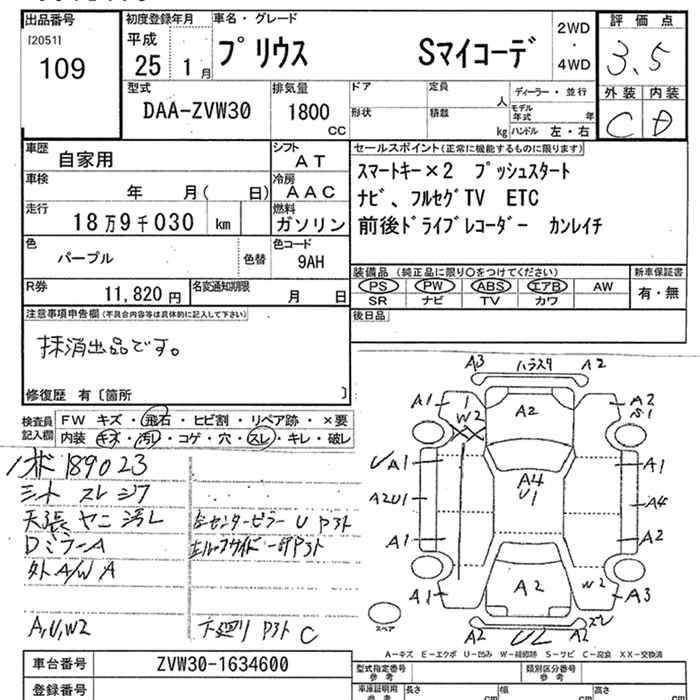 出品番号
[2051]
109
初度登録年月
平成
25年 1月
車名・グレード
プリウス Sマイコーデ
2WD
・
4WD
評価点
3.5
外装 内装
C D
型式
DAA-ZVW30
排気量
1800
CC
ドア
形状
定員
人
積載
kg
ディーラー・並行
モデル年式 年
ハンドル 左・右
車歴
自家用
シフト
AT
車検
年 月( 日)
冷房
AAC
走行
18万9千030 km
燃料
ガソリン
色
パープル
色替
色コード
9AH
R券
11,820円
名変通知期限
月 日
セールスポイント(正常に機能するものに限ります)
スマートキー×2 プッシュスタート
ナビ、フルセグTV ETC
前後ドライブレコーダー カンレイチ
装備品 (純正品に限り○をつけてください)
PS PW ABS エアB AW
SR ナビ TV カワ
新車保証書
有・無
後日品
注意事項申告欄(不具合内容等は具体的に記入して下さい)
抹消出品です。
修復歴 有〔箇所 〕
検査員
記入欄
FW キズ・飛石・ヒビ割・リペア跡・×要
内装 キズ・汚レ・コゲ・穴・スレ・キレ・破レ
189023
シート スレ シワ
天張 ヤニ 汚レ
DミラーA
外A/W A
A,U,W2
左センターピラー U Pヌト
下廻り Pヌト C
A3
A2
A1
W2
A2
A2
S1
UA1
A1
A4
U1
A2U1
A4
A1
A2
A1
A2
W2
A3
スペア
A2
UL
A2
A-キズ E-エクボ U-凹み W-補修跡 S-サビ C-腐食 XX-交換済
車台番号
ZVW30-1634600
登録番号
型式指定番号
参考
類別区分番号
参考
車庫証明用
参考
長さ
cm
幅
cm
高さ
cm